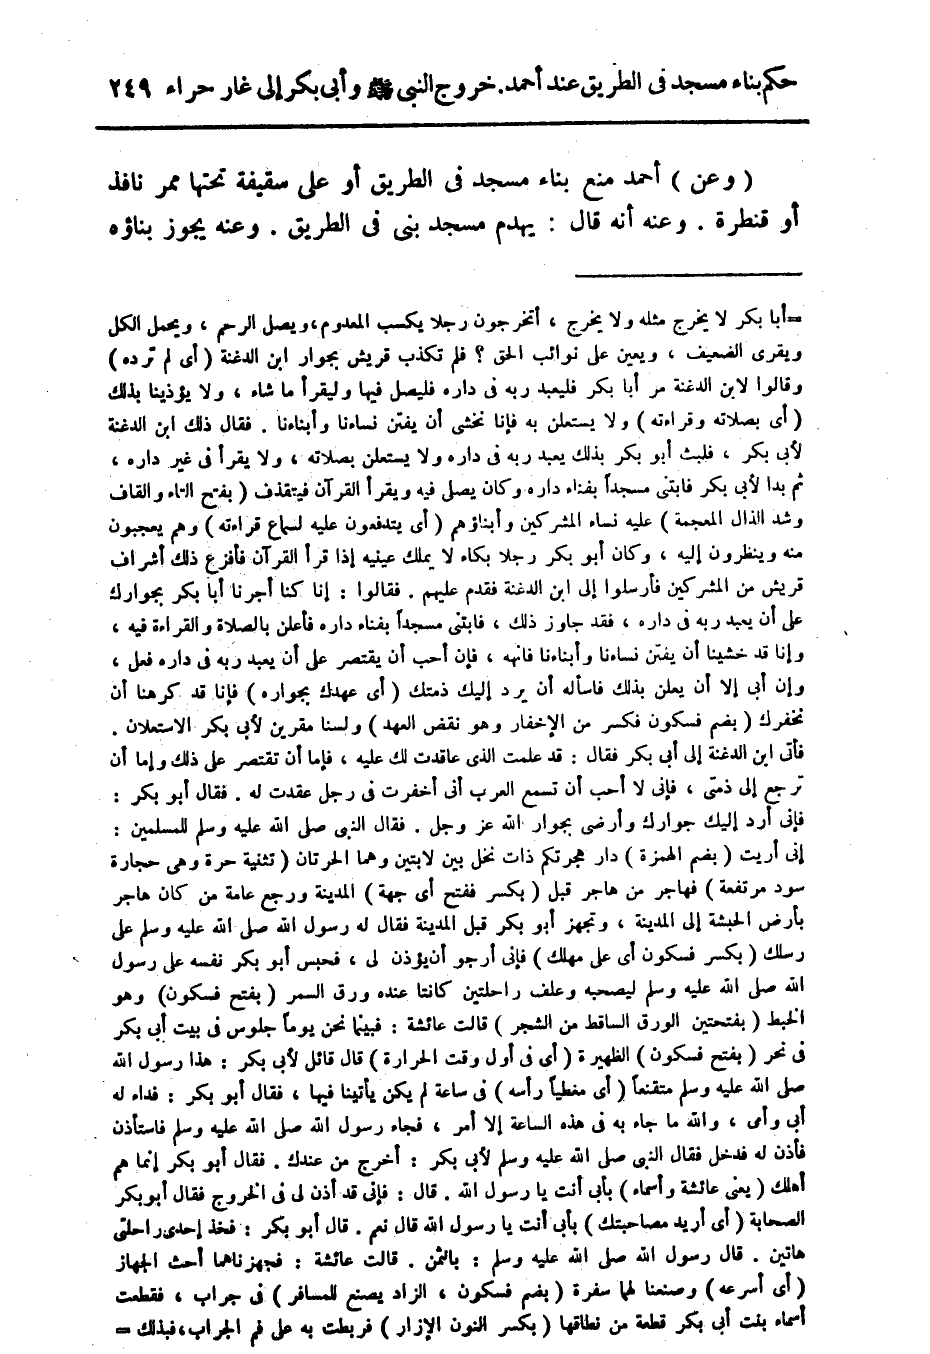 حكم بناء مسجد فى الطريق عند أحمد. خروج النبى ﷺ وأبى بكر إلى غار حراء ٢٤٩
( وعن ) أحمد منع بناء مسجد فى الطريق أو على سقيفة تحتها ممر نافذ
أو قنطرة . وعنه أنه قال : يهدم مسجد بنى فى الطريق . وعنه يجوز بناؤه
=أبا بكر لا يخرج مثله ولا يخرج ، أتخرجون رجلا يكسب المعدوم،ويصل الرحم ، ويحمل الكل
ويقرى الضعيف ، ويعين على نوائب الحق ؟ فلم تكذب قريش بجوار ابن الدغنة ( أى لم ترده )
وقالوا لابن الدغنة مر أبا بكر فليعبد ربه فى داره فليصل فيها وليقرأ ما شاء ، ولا يؤذينا بذلك
( أى بصلاته وقراءته ) ولا يستعلن به فإنا نخشى أن يفتن نساءنا وأبناءنا . فقال ذلك ابن الدغنة
لأبى بكر ، فلبث أبو بكر بذلك يعبد ربه فى داره ولا يستعلن بصلاته ، ولا يقرأ فى غير داره ،
ثم بدا لأبى بكر فابتنى مسجداً بفناء داره وكان يصل فيه ويقرأ القرآن فيتقذف ( بفتح التاء والقاف
وشد الذال المعجمة ) عليه نساء المشركين وأبناؤهم ( أى يتدفعون عليه لسماع قراءته ) وهم يعجبون
منه وينظرون إليه ، وكان أبو بكر رجلا بكاء لا يملك عينيه إذا قرأ القرآن فأفزع ذلك أشراف
قريش من المشركين فأرسلوا إلى ابن الدغنة فقدم عليهم . فقالوا : إنا كنا أجرنا أبا بكر بجوارك
على أن يعبد ربه فى داره ، فقد جاوز ذلك ، فابتنى مسجداً بفناء داره فأعلن بالصلاة والقراءة فيه ،
وإنا قد خشينا أن يفتن نساءنا وأبناءنا فانهه ، فإن أحب أن يقتصر على أن يعبد ربه فى داره فعل ،
وإن أبى إلا أن يعلن بذلك فاسأله أن يرد إليك ذمتك ( أى عهدك بجواره ) فإنا قد كرهنا أن
نخفرك ( بضم فسكون فكسر من الإخفار وهو نقض العهد ) ولسنا مقرين لأبى بكر الاستعلان .
فأتى ابن الدغنة إلى أبى بكر فقال : قد علمت الذى عاقدت لك عليه ، فإما أن تقتصر على ذلك وإما أن
ترجع إلى ذمتى ، فإنى لا أحب أن تسمع العرب أنى أخفرت فى رجل عقدت له . فقال أبو بكر :
فإنى أرد إليك جوارك وأرضى بجوار الله عز وجل . فقال النبى صلى الله عليه وسلم للمسلمين :
إنى أريت ( بضم الهمزة ) دار هجرتكم ذات نخل بين لابتين وهما الحرتان ( تثنية حرة وهى حجارة
سود مرتفعة ) فهاجر من هاجر قبل ( بكسر ففتح أى جهة ) المدينة ورجع عامة من كان هاجر
بأرض الحبشة إلى المدينة ، وتجهز أبو بكر قبل المدينة فقال له رسول الله صلى الله عليه وسلم على
رسلك ( بكسر فسكون أى على مهلك ) فإنى أرجو أن يؤذن لى ، فحبس أبو بكر نفسه على رسول
الله صلى الله عليه وسلم ليصحبه وعلف راحلتين كانتا عنده ورق السمر ( بفتح فسكون) وهو
الخبط ( بفتحتين الورق الساقط من الشجر ) قالت عائشة : فبينما نحن يوماً جلوس فى بيت أبى بكر
فى نحر ( بفتح فسكون ) الظهيرة ( أى فى أول وقت الحرارة ) قال قائل لأبى بكر : هذا رسول الله
صلى الله عليه وسلم متقنعاً ( أى مغطياً رأسه ) فى ساعة لم يكن يأتينا فيها ، فقال أبو بكر : فداء له
أبى وأمى ، والله ما جاء به فى هذه الساعة إلا أمر ، فجاء رسول الله صلى الله عليه وسلم فاستأذن
فأذن له فدخل فقال النبى صلى الله عليه وسلم لأبى بكر : أخرج من عندك . فقال أبو بكر إنما هم
أهلك ( يعنى عائشة وأسماء ) بأبى أنت يا رسول الله . قال : فإنى قد أذن لى فى الخروج فقال أبوبكر
الصحابة ( أى أريد مصاحبتك ) بأبى أنت يا رسول الله قال نعم . قال أبو بكر : فخذ إحدى راحلتى
هاتين . قال رسول الله صلى الله عليه وسلم : بالثمن . قالت عائشة : فجهزناهما أحث الجهاز
( أى أسرعه ) وصنعنا لهما سفرة ( بضم فسكون ، الزاد يصنع للمسافر ) فى جراب ، فقطعت
أسماء بنت أبى بكر قطعة من نطاقها ( بكسر النون الإزار ) فربطت به على فم الجراب، فبذلك =